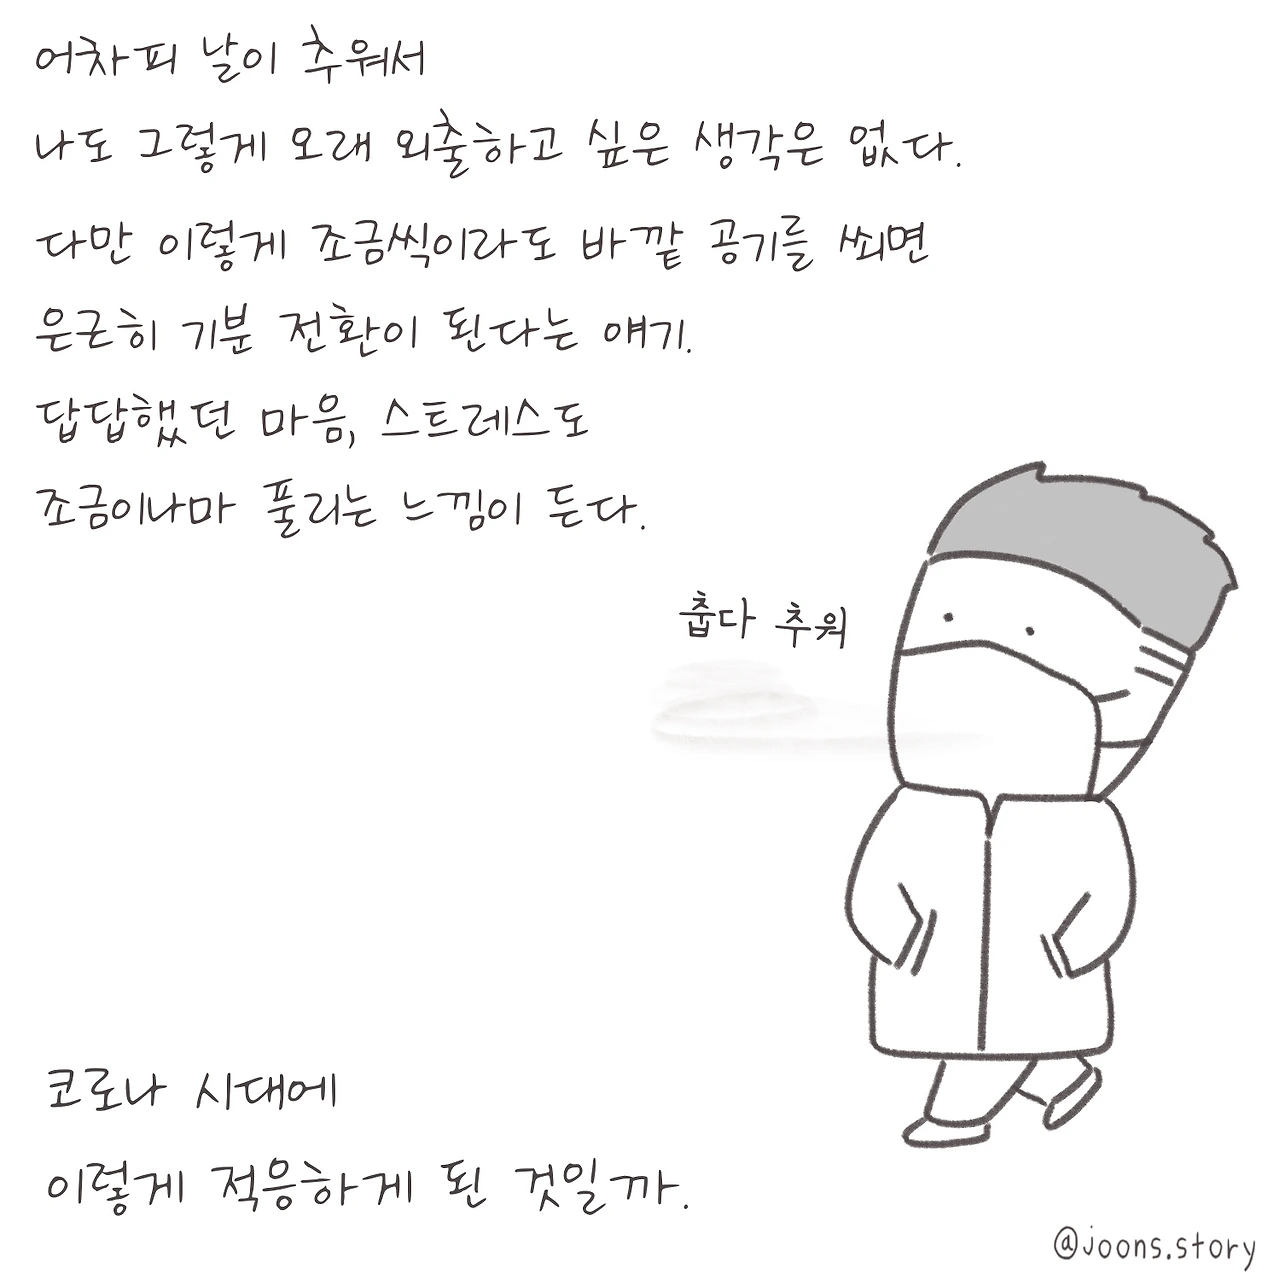 어차피 날이 추워서
나도 그렇게 오래 외출하고 싶은 생각은 없다.
다만 이렇게 조금씩이라도 바깥 공기를 쐬면
은근히 기분 전환이 된다는 얘기.
답답했던 마음, 스트레스도
조금이나마 풀리는 느낌이 든다.
춥다 추워
코로나 시대에
이렇게 적응하게 된 것일까.
@joons.story